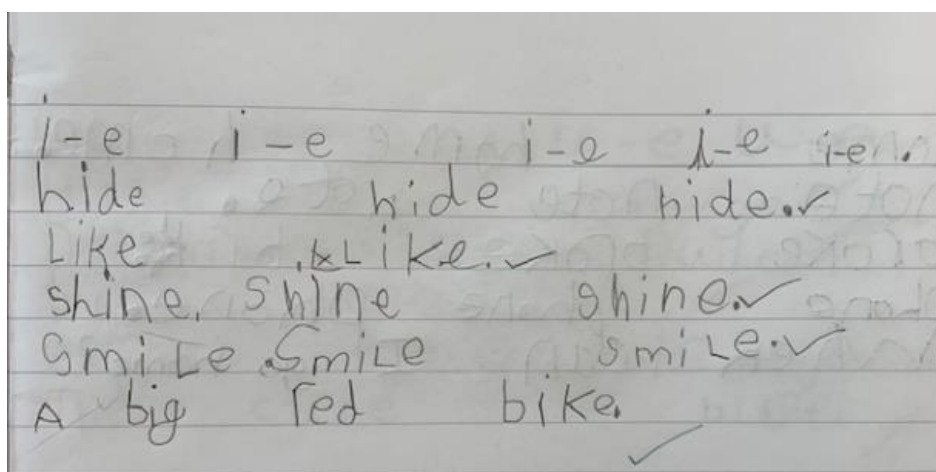 i-e i-e i-e i-e i-e.
hide hide hide.✓
Like Like.✓
shine. shine shine.✓
smiLe.SmiLe smiLe.✓
A big red bike.
✓